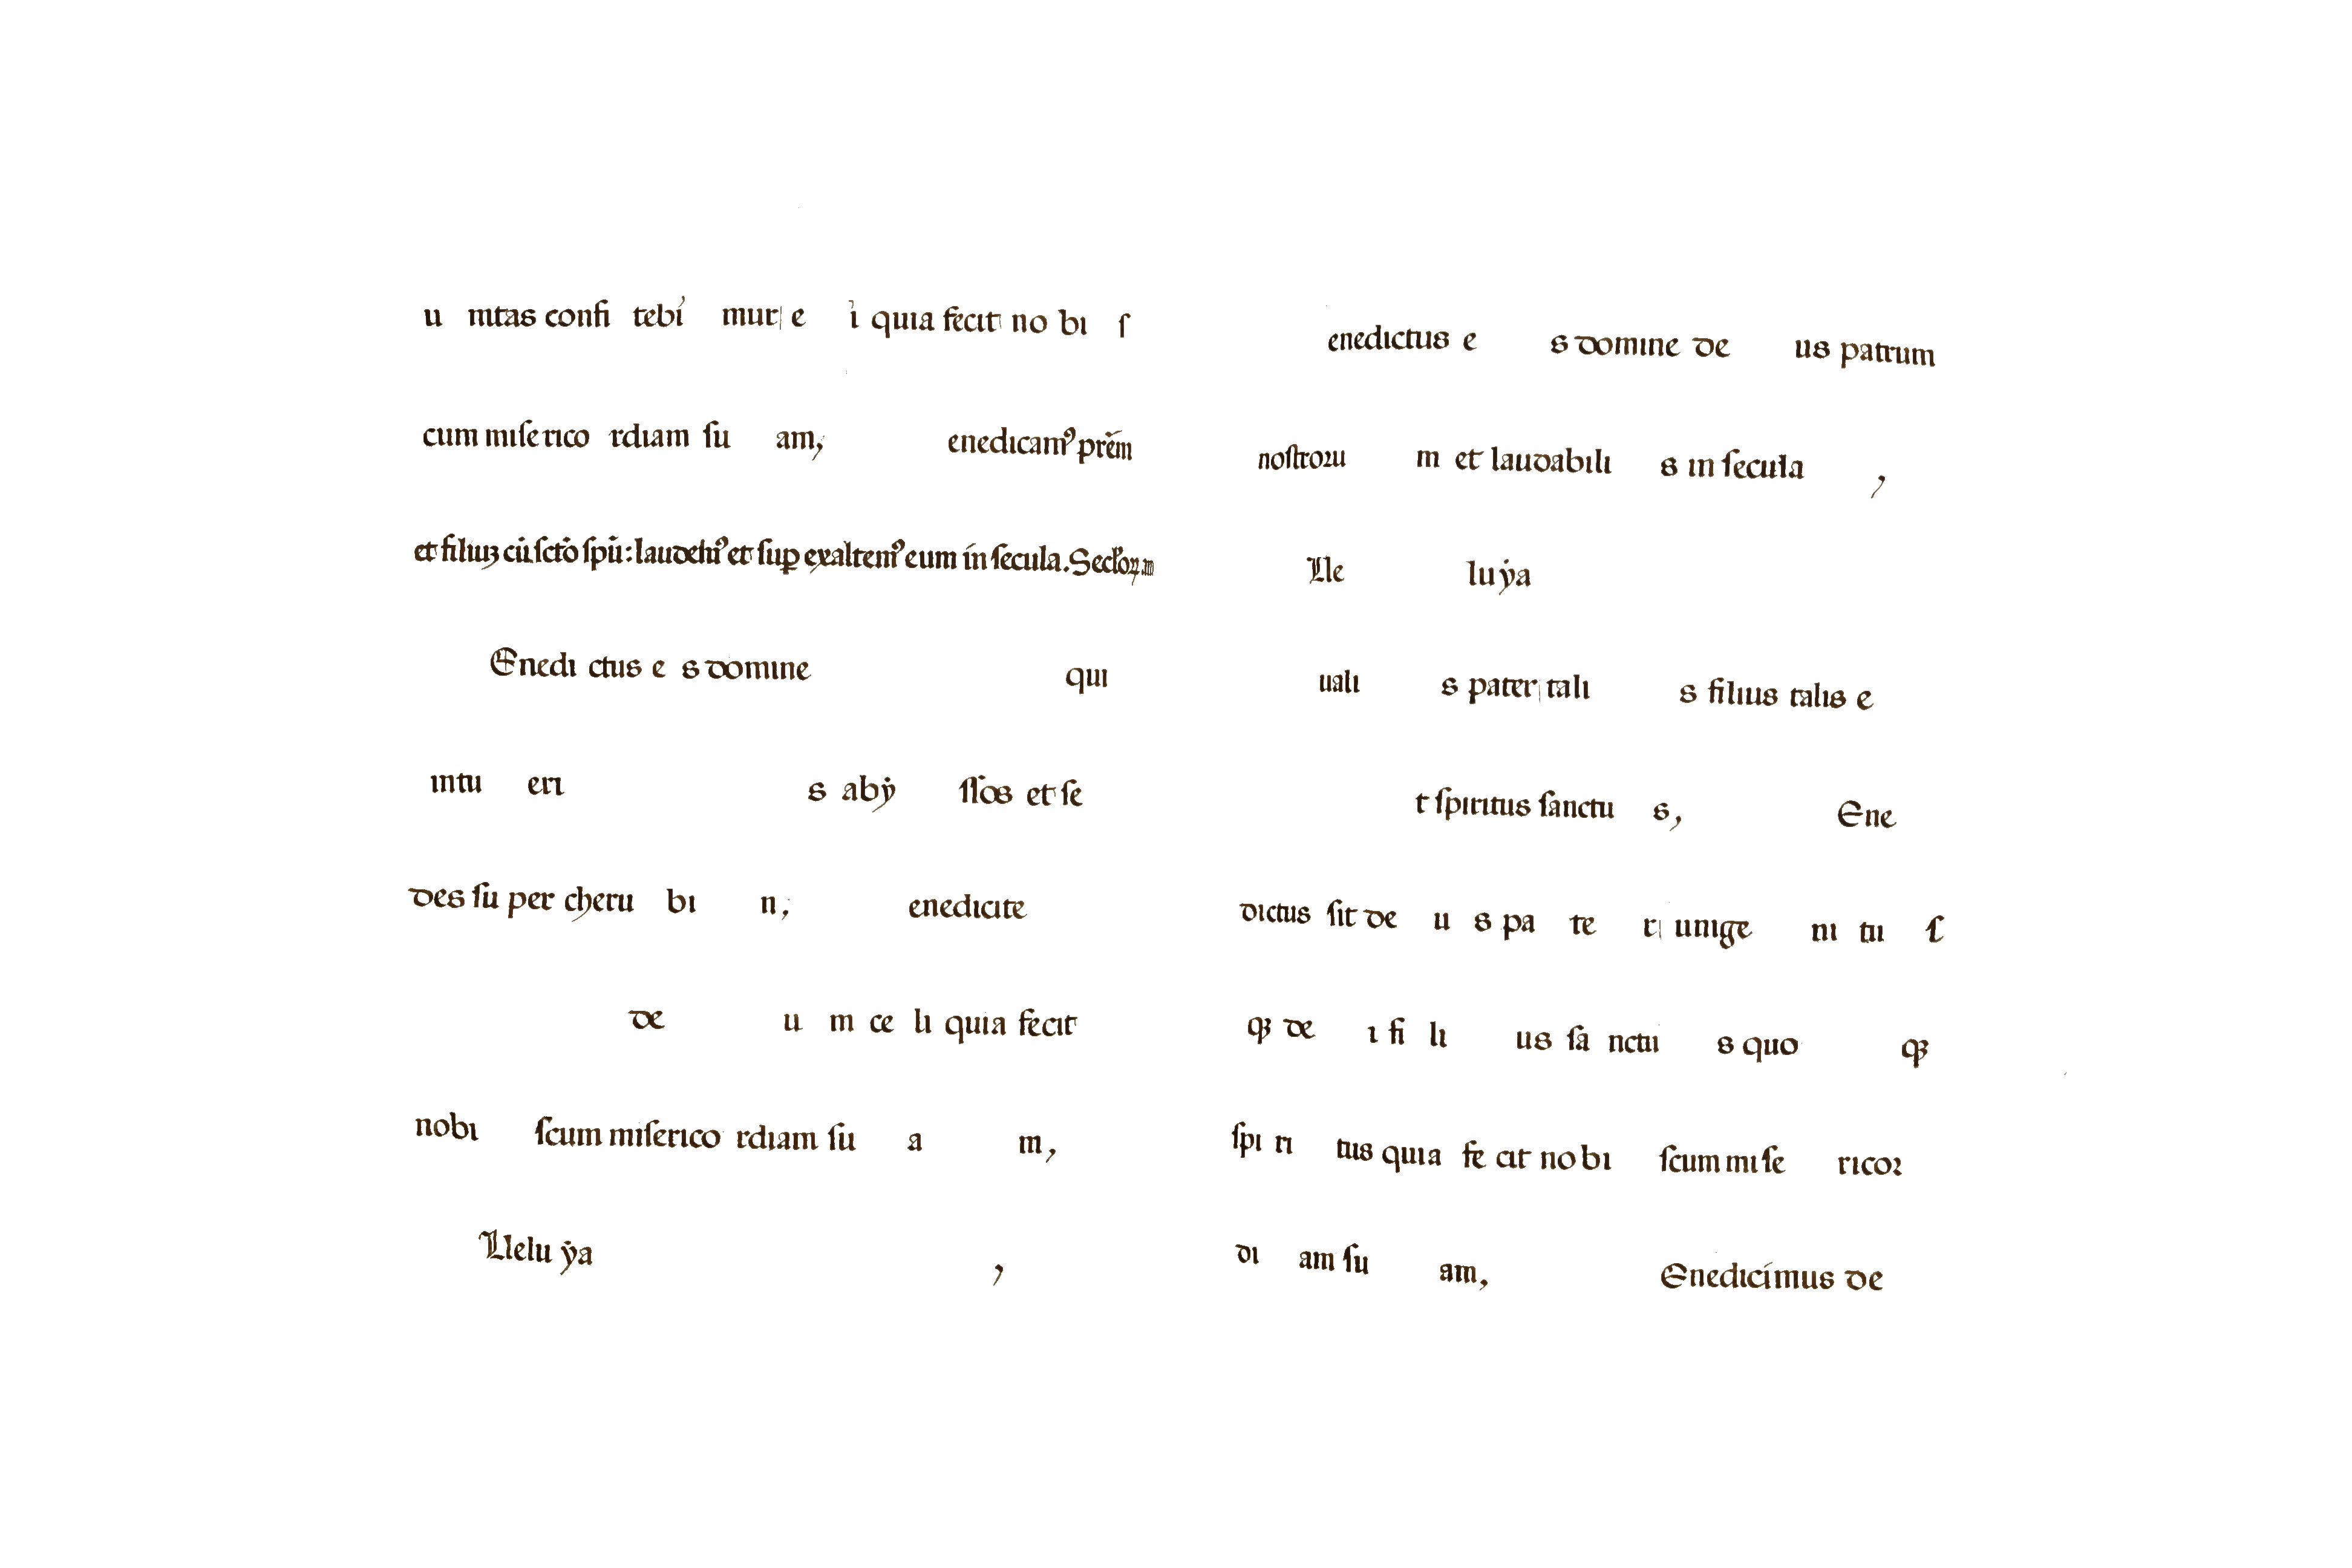 u nitas confi tebi mur e i quia fecit no bi ſ
cum miſe rico rdiam ſu am, enedicamꝰ prēm
et filiuꝫ cū ſctō ſpū: laudemꝰ et ſuꝑ exaltemꝰ eum in ſecula. Seclorꝝ am
Enedi ctus e s domine qui
intu eri s abẏ ſſos et ſe
des ſu per cheru bi n, enedicite
de u m ce li quia fecit
nobi ſcum miſerico rdiam ſu a m,
Llelu ẏa ,
enedictus e s domine de us patrum
noſtroꝛu m et laudabili s in ſecula ,
Lle lu ẏa
uali s pater tali s filius talis e
t ſpiritus ſanctu s, Ene
dictus ſit de u s pa te r unige ni tu ſ
qꝫ de i fi li us ſa nctu s quo qꝫ
ſpi ri tus quia fe cit no bi ſcum mi ſe ricoꝛ
di am ſu am, Enedicimus de